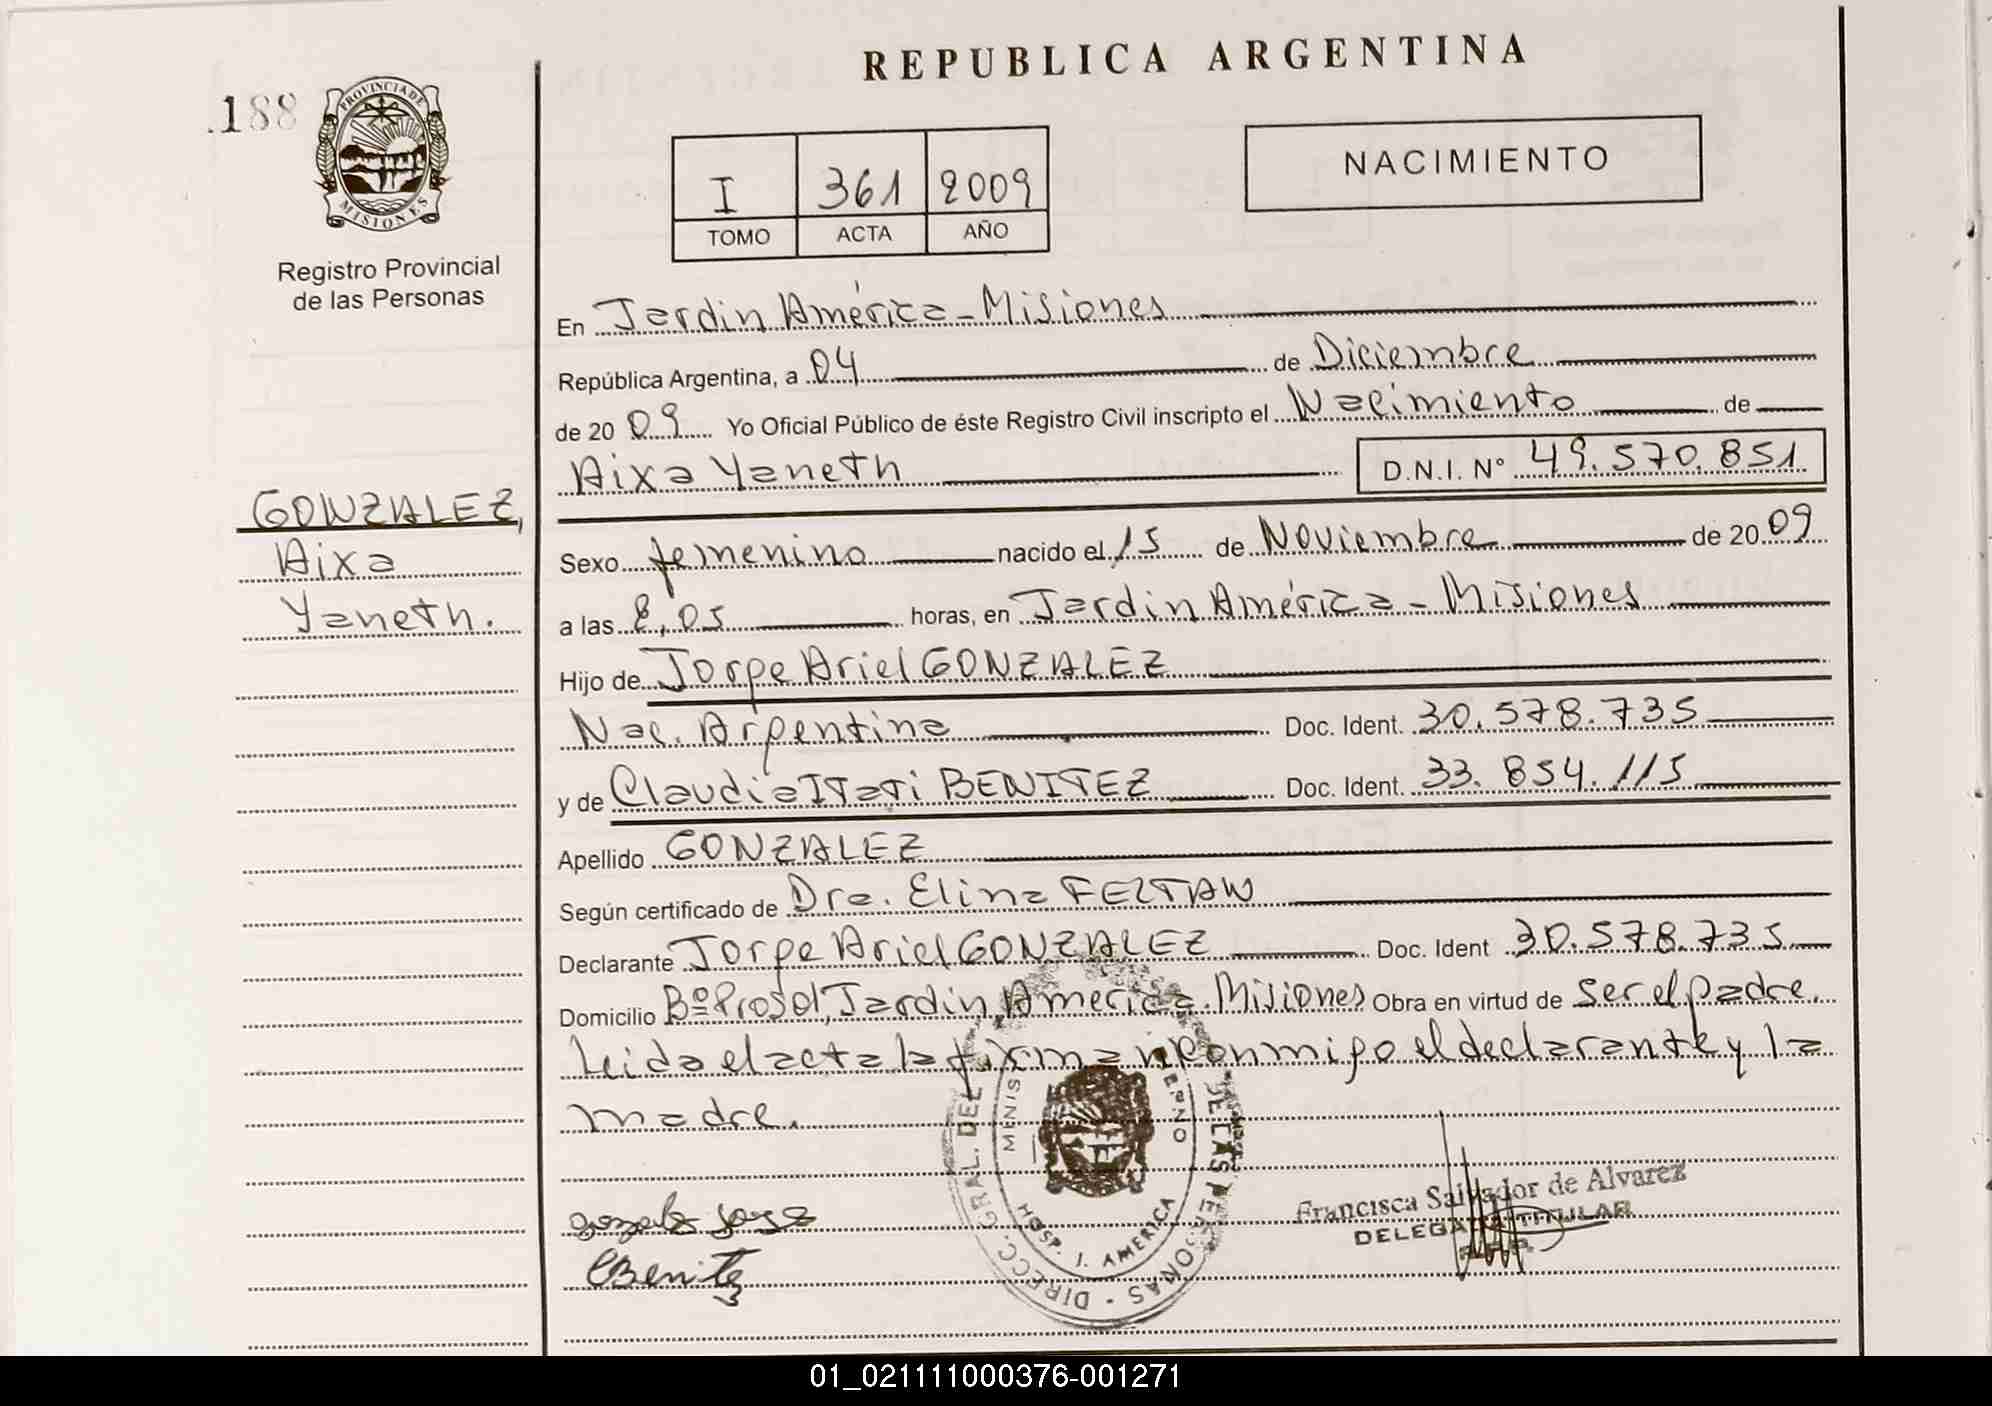 REPUBLICA ARGENTINA
188
PROVINCIA DE
MISIONES
Registro Provincial
de las Personas
I 361 2009
TOMO ACTA AÑO
NACIMIENTO
En Jardin América - Misiones
República Argentina, a 04 de Diciembre
de 20 09 Yo Oficial Público de éste Registro Civil inscripto el Nacimiento de
Aixa Yaneth D.N.I. Nº 49.570.851
GONZALEZ,
Aixa
Yaneth.
Sexo femenino nacido el 15 de Noviembre de 20 09
a las 8,05 horas, en Jardin América - Misiones
Hijo de Jorge Ariel GONZALEZ
Nac. Argentina Doc. Ident. 30.578.735
y de Claudia Itati BENITEZ Doc. Ident. 33.854.115
Apellido GONZALEZ
Según certificado de Dra. Elina FELTAN
Declarante Jorge Ariel GONZALEZ Doc. Ident 30.578.735
Domicilio Bº Prosol, Jardin América. Misiones Obra en virtud de ser el padre.
Leida el acta la firman conmigo el declarante y la
madre.
gonzalez Jorge
CBenitez
DIRECC. GRAL. DEL DE LAS PERSONAS
MINIS ERNO
HOSP. J. AMERICA
Francisca Salvador de Alvarez
DELEGADA TITULAR
01_021111000376-001271